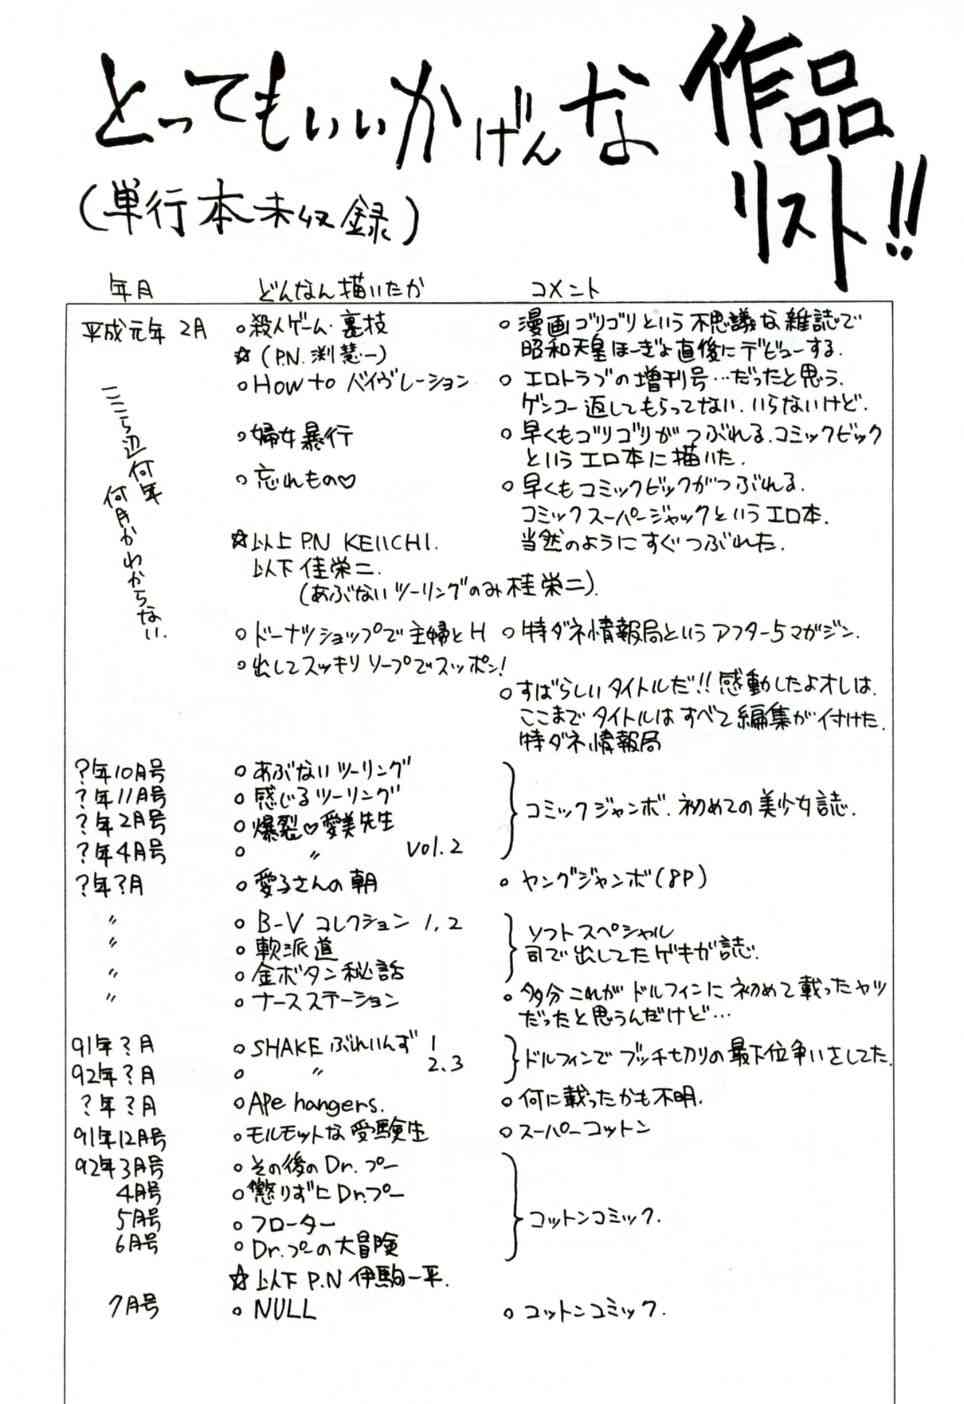 とってもいいかげんな作品リスト!!
(単行本未収録)
年月 どんなん描いたか コメント
平成元年 2月 ○殺人ゲーム・裏技 ○漫画ゴリゴリという不思議な雑誌で
☆(P.N. 渕慧一) 昭和天皇ほーぎょ直後にデビューする.
ここら辺何年何月かわからない.
○How to バイヴレーション ○エロトラブの増刊号…だったと思う.
ゲンコー返してもらってない. いらないけど.
○婦女暴行 ○早くもゴリゴリがつぶれる. コミックビック
というエロ本に描いた.
○忘れもの♡ ○早くもコミックビックがつぶれる.
コミックスーパージャックというエロ本.
☆以上 P.N KEIICHI. 当然のようにすぐつぶれた.
以下 佳栄二.
(あぶないツーリングのみ 桂栄二).
○ドーナツショップで主婦とH ○特ダネ情報局というアフター5マガジン.
○出してスッキリ ソープでスッポン!
○すばらしいタイトルだ!! 感動したよオレは.
ここまでタイトルはすべて編集が付けた.
特ダネ情報局
?年10月号 ○あぶないツーリング
?年11月号 ○感じるツーリング
コミックジャンボ. 初めての美少女誌.
?年2月号 ○爆裂♡愛美先生
?年4月号 ○ 〃 vol.2
?年?月 ○愛子さんの朝 ○ヤングジャンボ(8P)
〃 ○B-V コレクション 1, 2
〃 ○軟派道
ソフトスペシャル
司で出してたゲキガ誌.
〃 ○金ボタン秘話
〃 ○ナースステーション ○多分これがドルフィンに初めて載ったヤツ
だったと思うんだけど…
91年?月 ○SHAKE ぶれいんず 1
ドルフィンでブッチ切りの最下位争いをしてた.
92年?月 ○ 〃 2.3
?年?月 ○Ape hangers. ○何に載ったかも不明.
91年12月号 ○モルモットな受験生 ○スーパーコットン
92年3月号 ○その後のDr.プー
4月号 ○懲りずにDr.プー
コットンコミック.
5月号 ○フローター
6月号 ○Dr.プーの大冒険
☆以下 P.N 伊駒一平.
7月号 ○NULL ○コットンコミック.